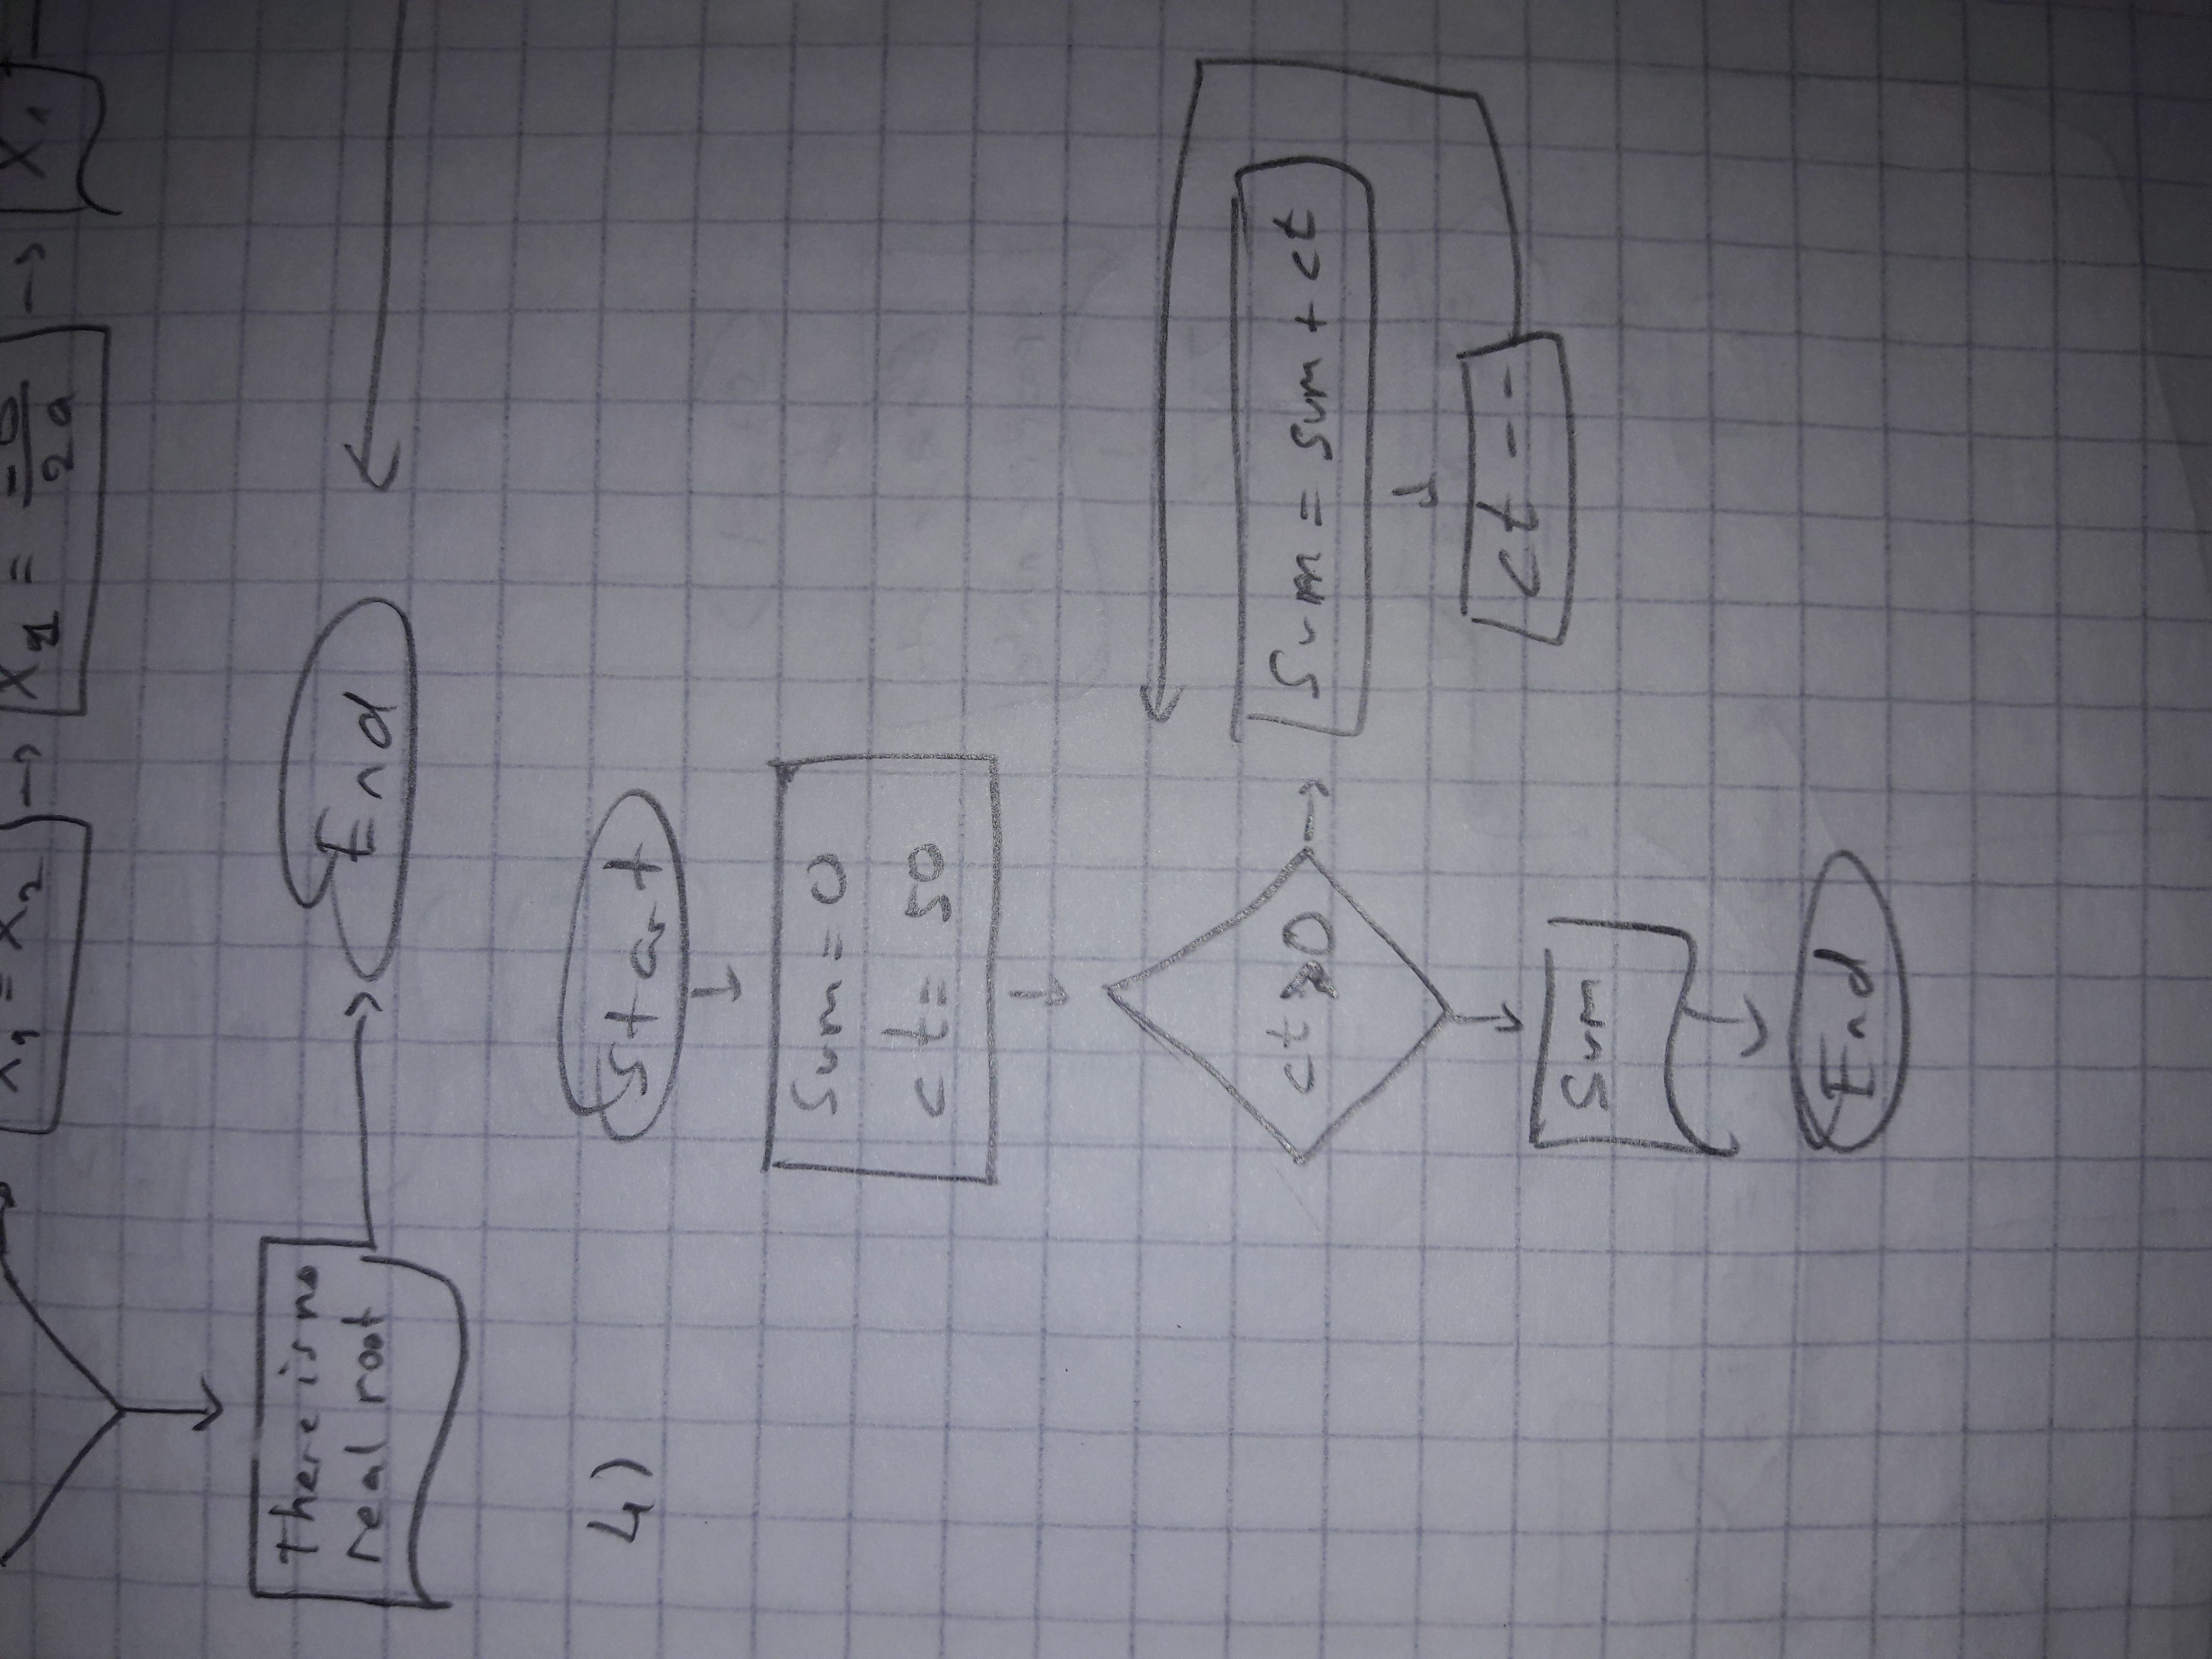 x₁ = x₂ → x₁ = -b / 2a → x₁
There is no
real root
End
4)
Start
Sum = 0
ct = 50
ct > 0
Sum = sum + ct
ct --
Sum
End